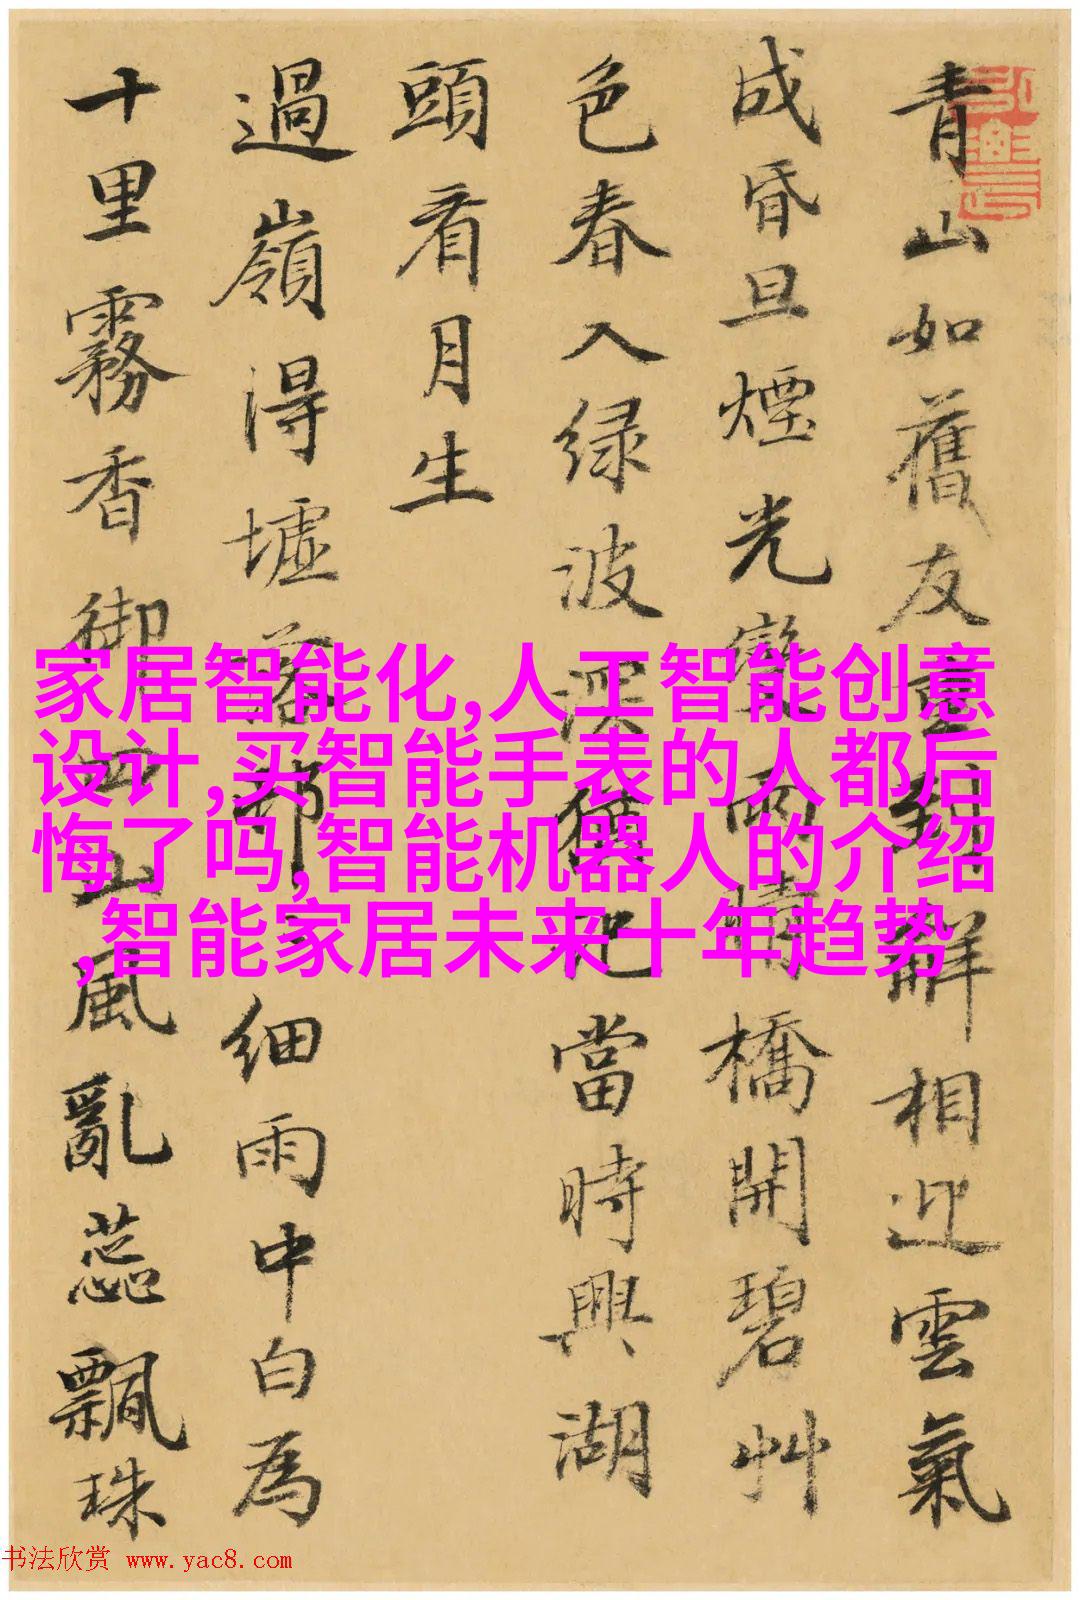 青山如舊友重到解相迎雲氣
成昏旦煙光變雨晴橋開碧艸
色春入緑波深把當時興湖
頭看月生
過嶺得墟落細雨中白為
十里霧香御四山風亂蕊飄珠
家居智能化,人工智能创意
设计,买智能手表的人都后
悔了吗,智能机器人的介绍
,智能家居未来十年趋势
书法欣赏 www.yac8.com